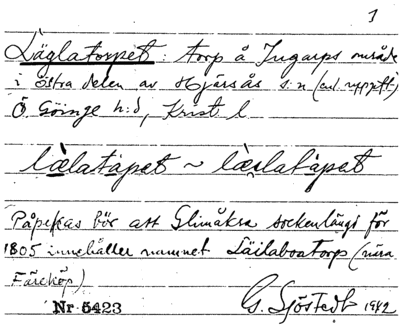 1
Läglatorpet: torp å Ingarps område
i östra delen av Hjärsås s:n (enl. uppgift)
Ö. Göinge h:d, Krist. l.
lælatåpet ~ læglatåpet
Påpekas bör att Glimåkra sockenlängd för
1805 innehåller namnet Läilaboatorp (nära
Färeköp)
Nr 5423 G. Sjöstedt 1942